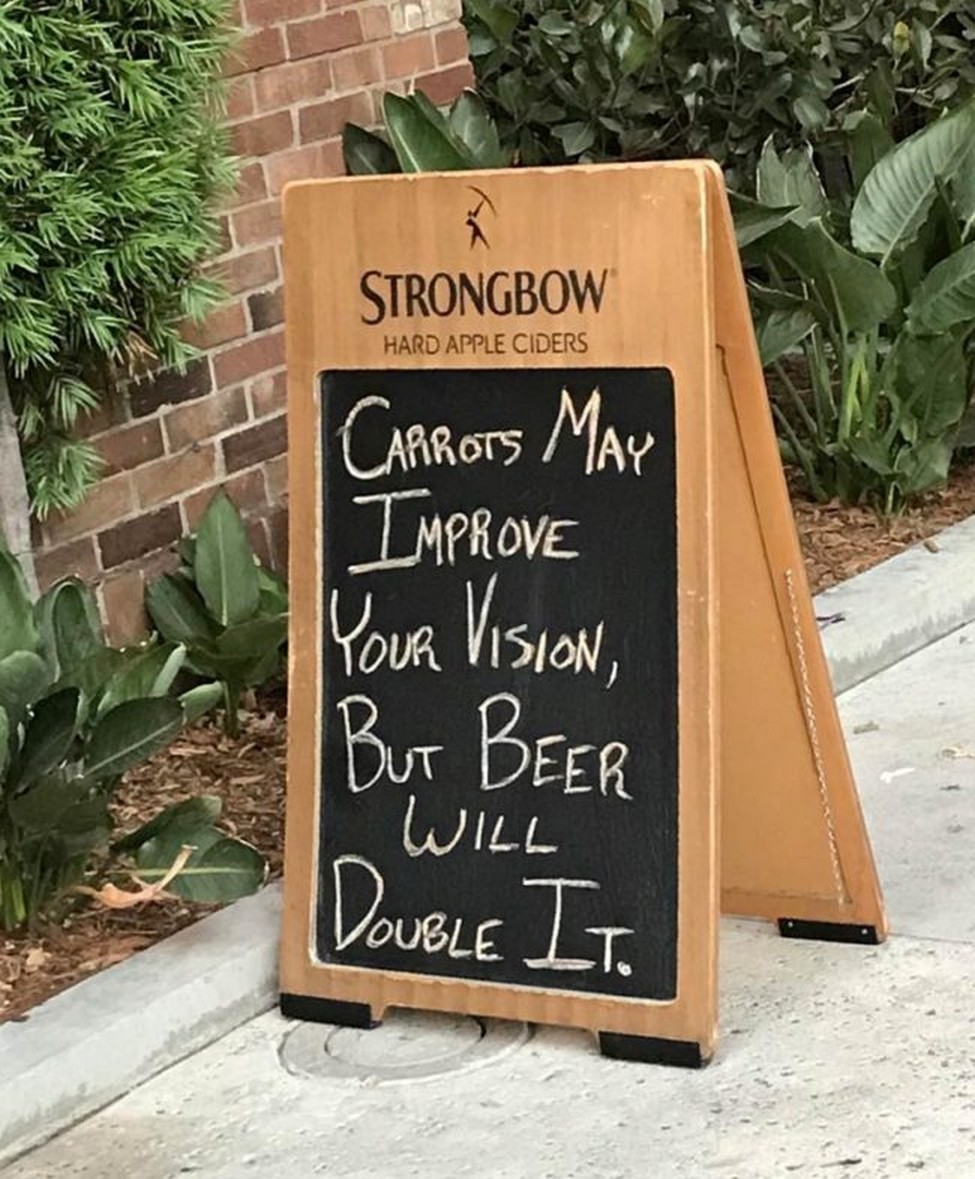 STRONGBOW
HARD APPLE CIDERS
CARROTS MAY
IMPROVE
YOUR VISION,
BUT BEER
WILL
DOUBLE IT.